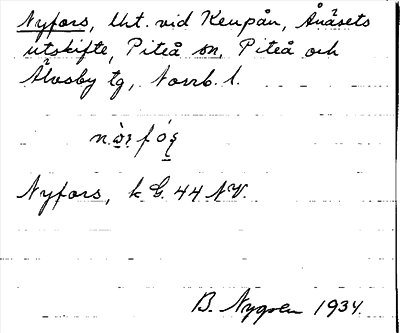 Nyfors, lht. vid Keupån, Ånäsets
utskifte, Piteå sn, Piteå och
Älvsby tg, Norrb. l.
Nyfors, k G. 44 NV.
B. Nygren 1934.